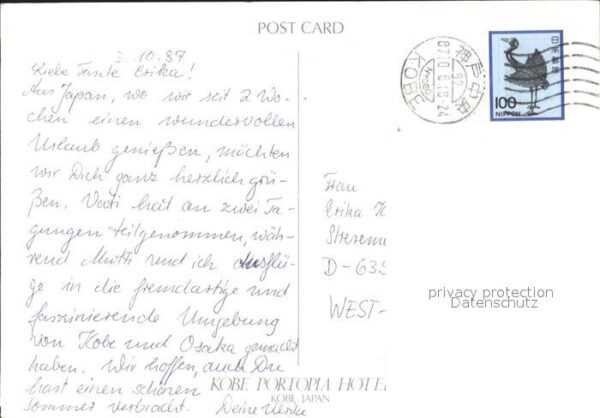 POST CARD
3.10.87
Liebe Tante Erika!
Aus Japan, wo wir seit 2 Wo-
chen einen wundervollen
Urlaub genießen, möchten
wir Dich ganz herzlich grü-
ßen. Vati hat an zwei Ta-
gungen teilgenommen, wäh-
rend Mutti und ich Ausflü-
ge in die fremdartige und
faszinierende Umgebung
von Kobe und Osaka gemacht
haben. Wir hoffen, auch Du
hast einen schönen
Sommer verbracht. Deine Ulrike
神戸中央
87.10.6.18-24
HYOGO
KOBE
日本郵便
100
NIPPON
Frau
Erika H
Streseme
D-635
WEST-
privacy protection
Datenschutz
KOBE PORTOPIA HOTEL
KOBE, JAPAN